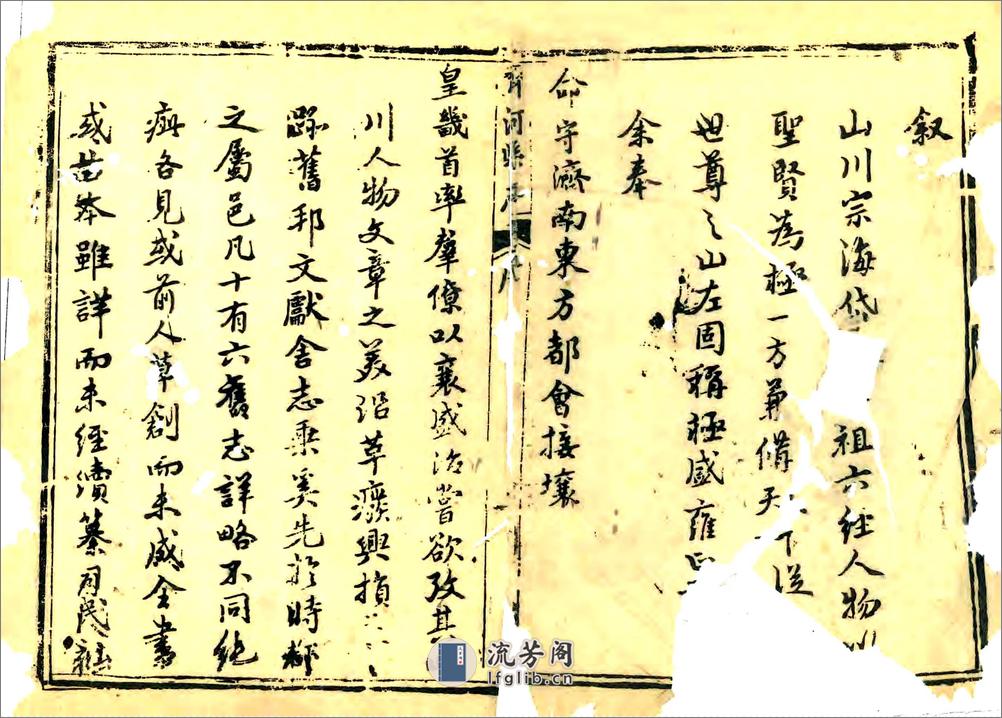 叙
山川宗海岱
祖六经人物以
聖賢為極一方兼備天下從
世尊之山左固稱極盛雍正
余奉
命守濟南東方都會接壤
齊河縣志
序
皇畿首率羣僚以襄盛治嘗欲攷其
川人物文章之美沿革癈興損
跡舊邦文獻舍志乗奚先於時郡
之屬邑凡十有六舊志詳略不同純
疵各見或前人草創而未成全書
或昔本雖詳而未經續纂
流芳阁
lfglib.cn